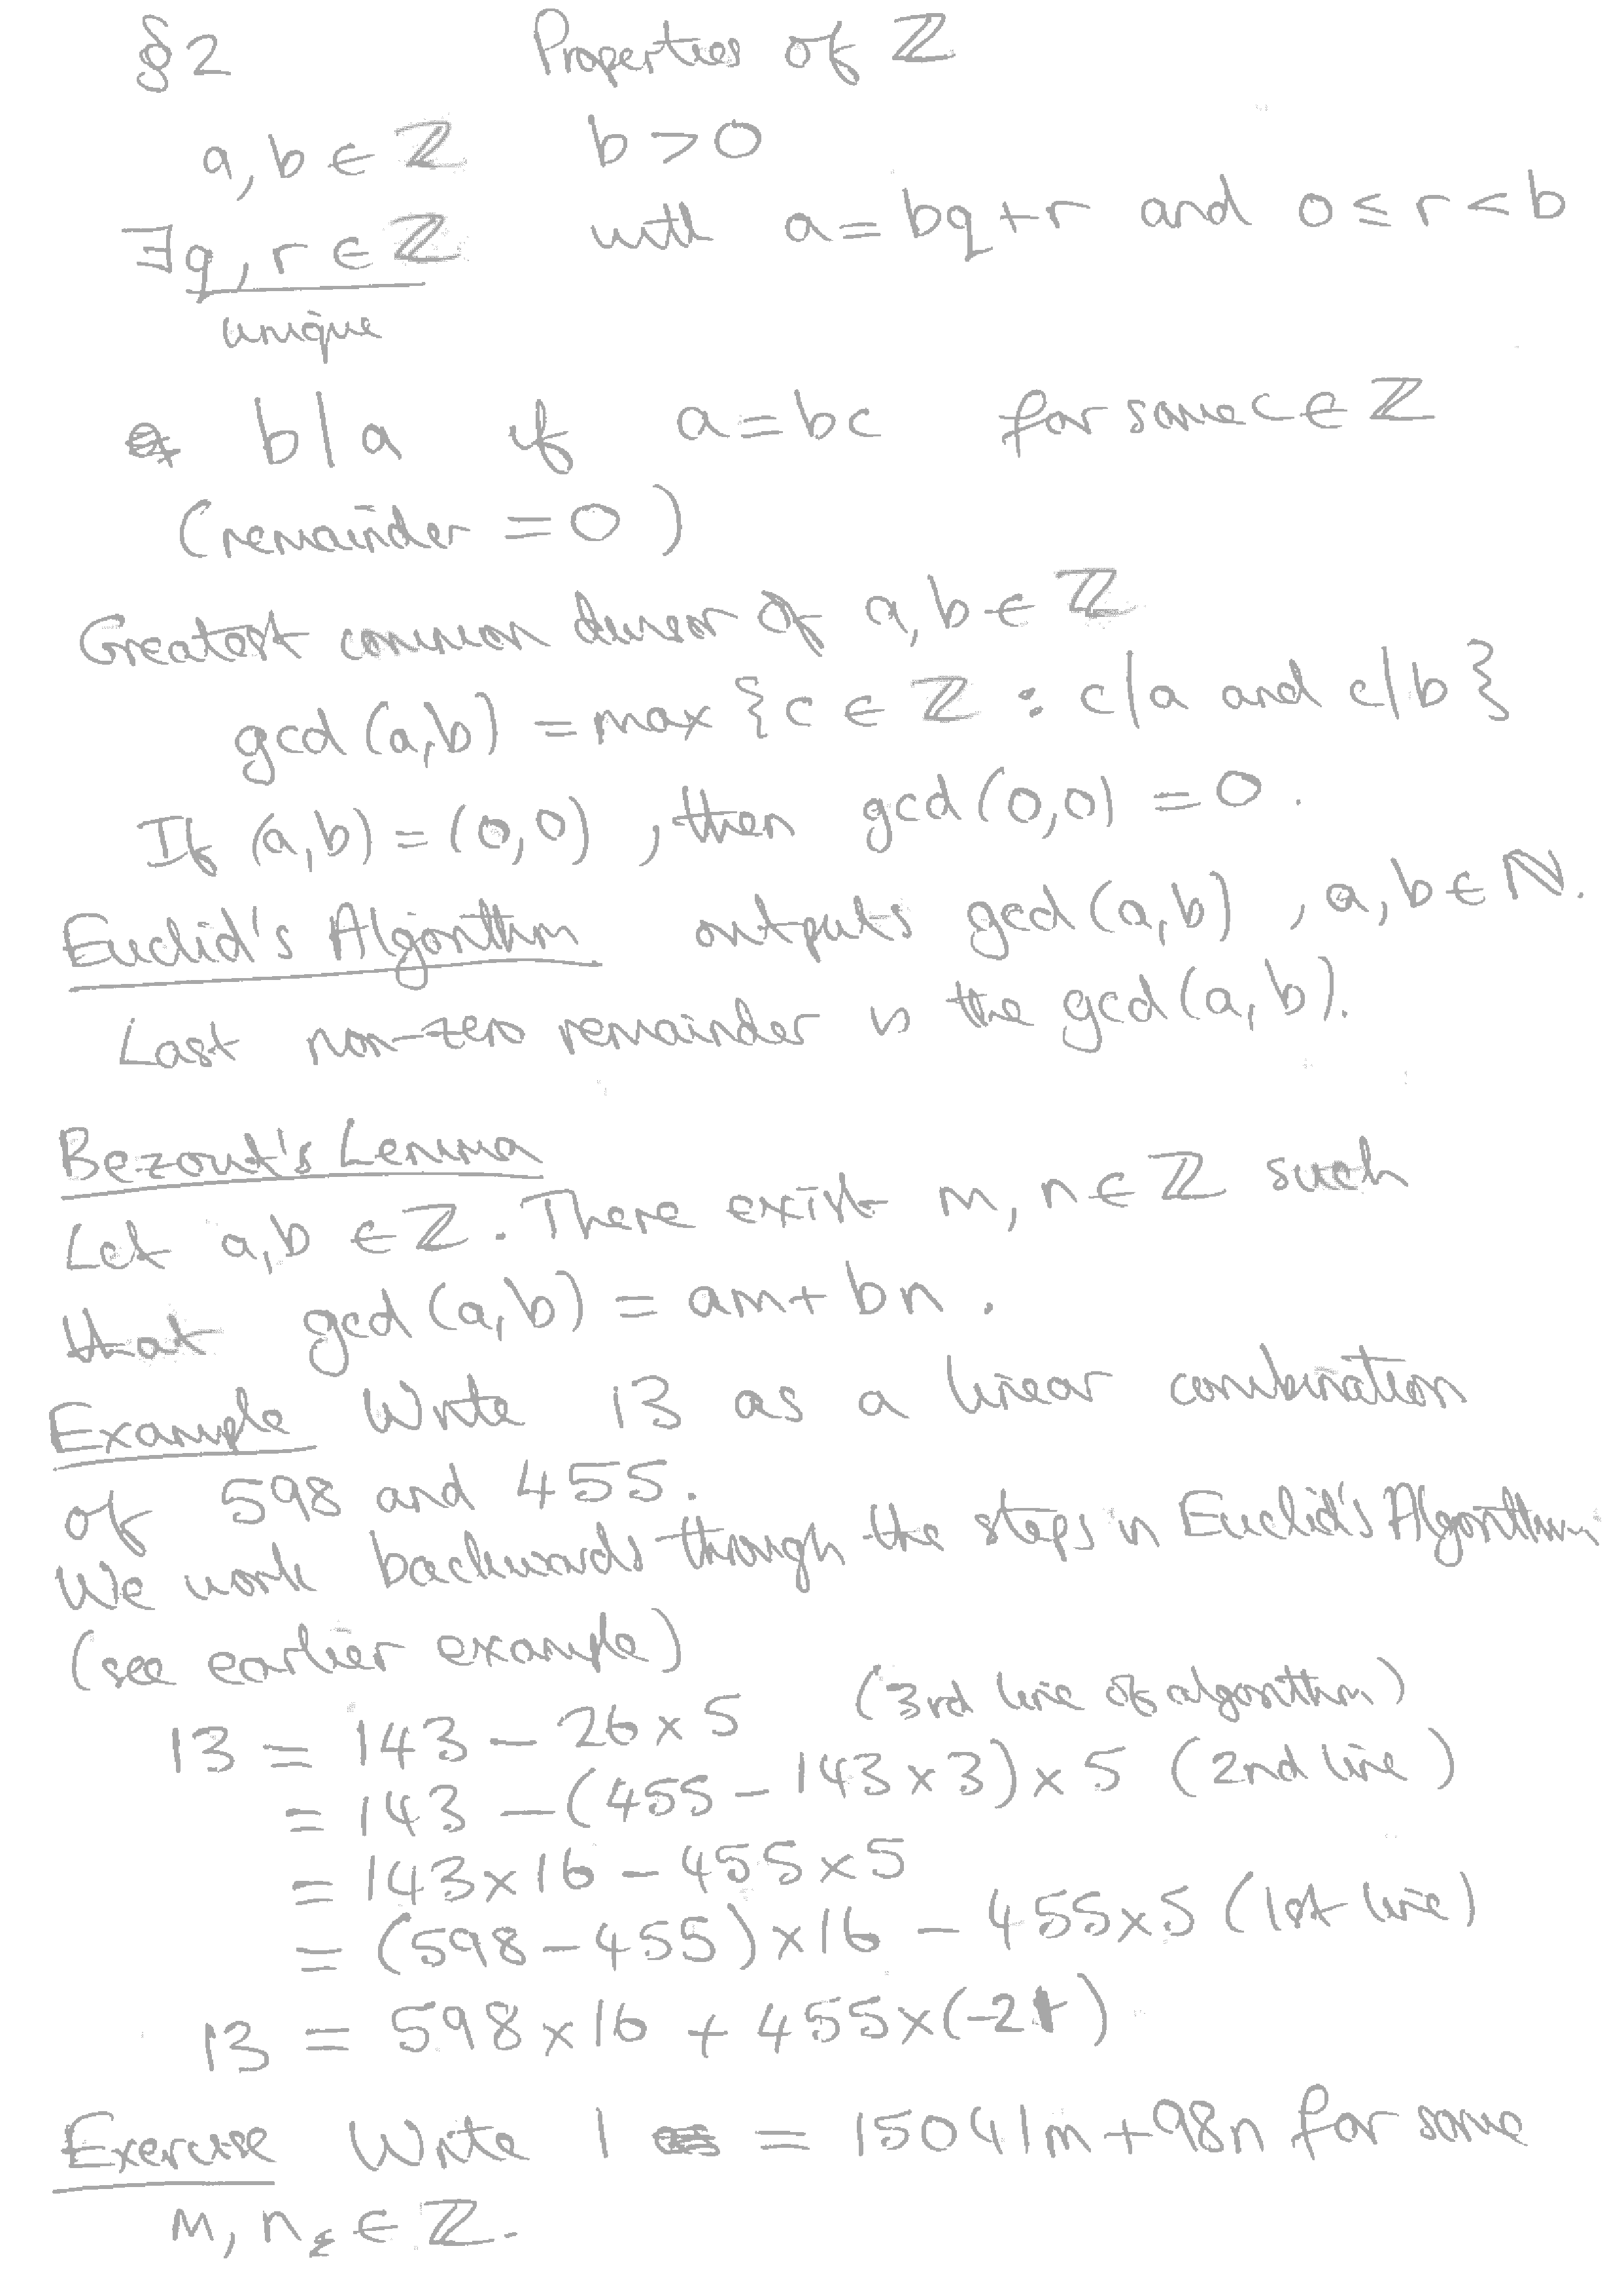 §2 Properties of ℤ
a, b ∈ ℤ b > 0
∃ q, r ∈ ℤ with a = bq + r and 0 ≤ r < b
unique
b | a if a = bc for some c ∈ ℤ
(remainder = 0)
Greatest common divisor of a, b ∈ ℤ
gcd (a,b) = max {c ∈ ℤ : c|a and c|b}
If (a,b) = (0,0), then gcd(0,0) = 0.
Euclid's Algorithm outputs gcd (a,b), a, b ∈ ℕ.
Last non-zero remainder is the gcd(a,b).
Bezout's Lemma
Let a,b ∈ ℤ. There exist m, n ∈ ℤ such
that gcd (a,b) = am + bn.
Example Write 13 as a linear combination
of 598 and 455.
We work backwards through the steps in Euclid's Algorithm
(see earlier example)
13 = 143 − 26 × 5 (3rd line of algorithm)
= 143 − (455 − 143 × 3) × 5 (2nd line)
= 143 × 16 − 455 × 5
= (598 − 455) × 16 − 455 × 5 (1st line)
13 = 598 × 16 + 455 × (−21)
Exercise Write 1 = 15041m + 98n for some
m, n ∈ ℤ.